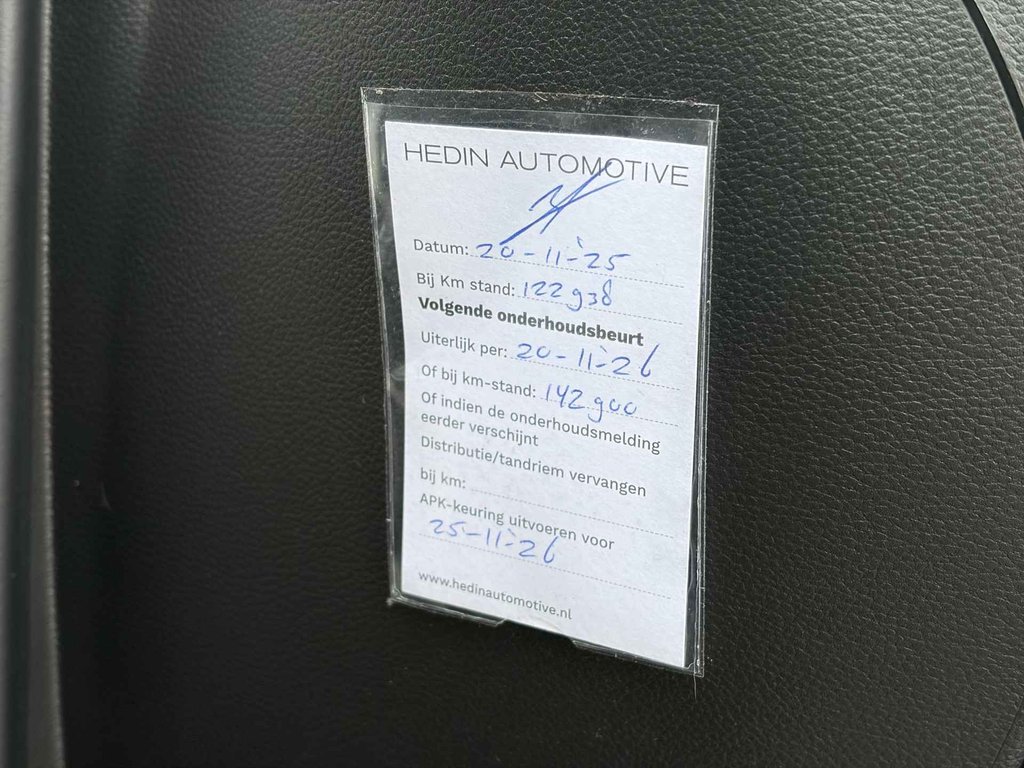 HEDIN AUTOMOTIVE
Datum: 20-11-'25
Bij Km stand: 122 938
Volgende onderhoudsbeurt
Uiterlijk per: 20-11-'26
Of bij km-stand: 142 900
Of indien de onderhoudsmelding
eerder verschijnt
Distributie/tandriem vervangen
bij km:
APK-keuring uitvoeren voor
25-11-'26
www.hedinautomotive.nl